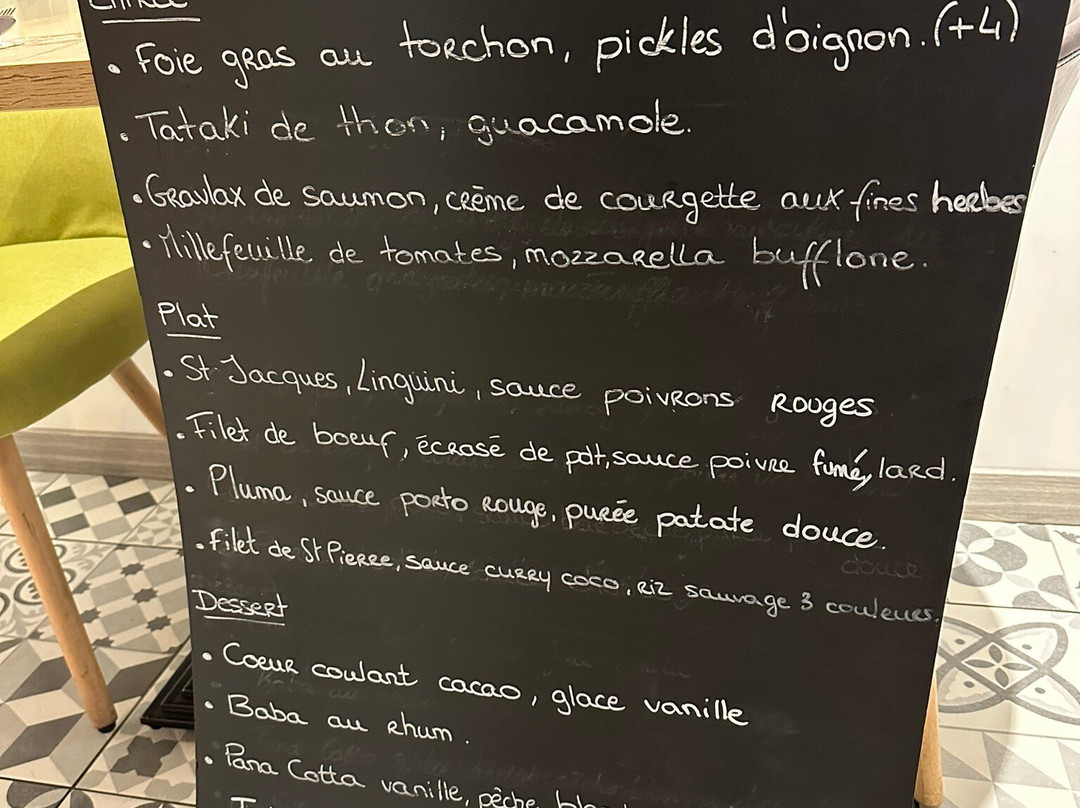 • Foie gras au torchon, pickles d'oignon. (+4)
• Tataki de thon, guacamole.
• Gravlax de saumon, crème de courgette aux fines herbes
• Millefeuille de tomates, mozzarella bufflone.
Plat
• St Jacques, Linguini, sauce poivrons rouges
• Filet de boeuf, écrasé de pdt, sauce poivre fumé, lard.
• Pluma, sauce porto rouge, purée patate douce.
• Filet de St Pierre, sauce curry coco, riz sauvage 3 couleurs.
Dessert
• Coeur coulant cacao, glace vanille
• Baba au rhum.
• Pana Cotta vanille, pêche